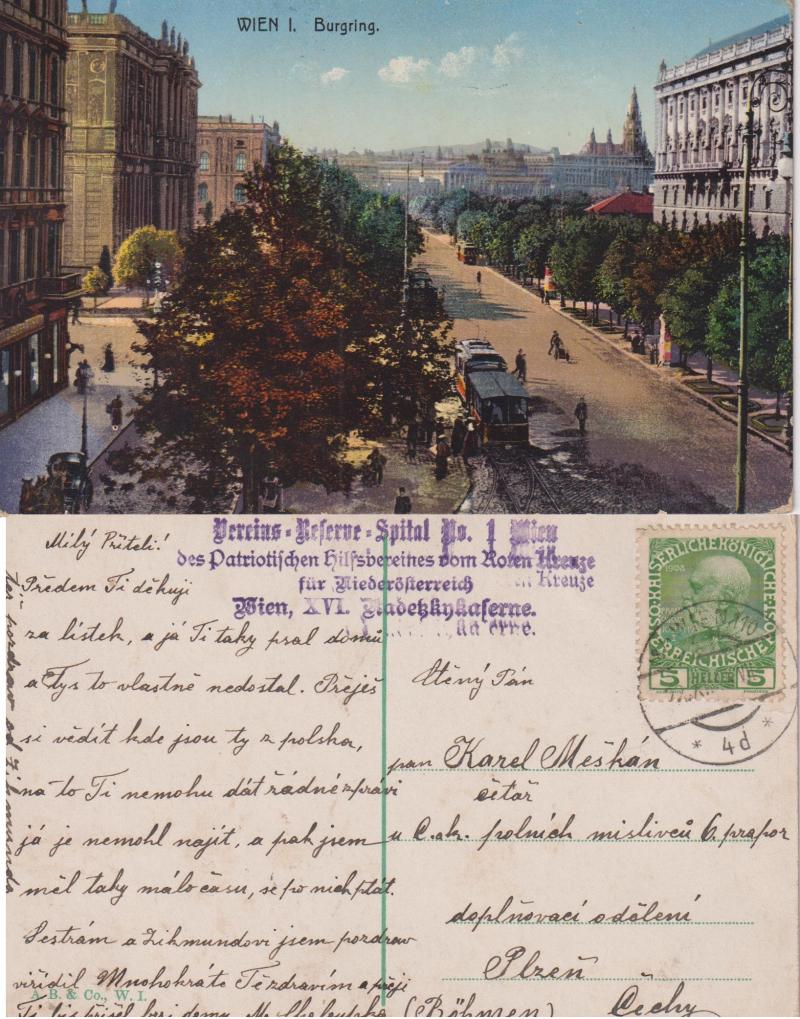 WIEN I. Burgring.
Vereins-Reserve-Spital No. 1 Wien
des Patriotischen Hilfsvereines vom Roten Kreuze
für Niederösterreich
Wien, XVI. Radetzkykaserne.
KAISERLICHEKÖNIGLICHE
ÖSTERREICHISCHE
1908
5 HELLER 5
* 4d *
Milý Příteli!
Předem Ti děkuji
za lístek, a já Ti taky psal domů
a Tys to vlastně nedostal. Přeješ
si vědít kde jsou ty z polska,
na to Ti nemohu dát řádné zprávi
já je nemohl najít, a pak jsem
měl taky málo času, se po nich ptát.
Sestrám a Zikmundovi jsem pozdraw
viřídil Mnohokráte Tě zdravím a přeji
Ti bis přišel brzi domu M.
též pozdrav od Zikmunda
A. B. & Co., W. I.
Ctěný Pán
pan Karel Meškán
četař
u C. a k. polních mislivců 6. prapor
doplňovací oddělení
Plzeň
(Böhmen) Čechy